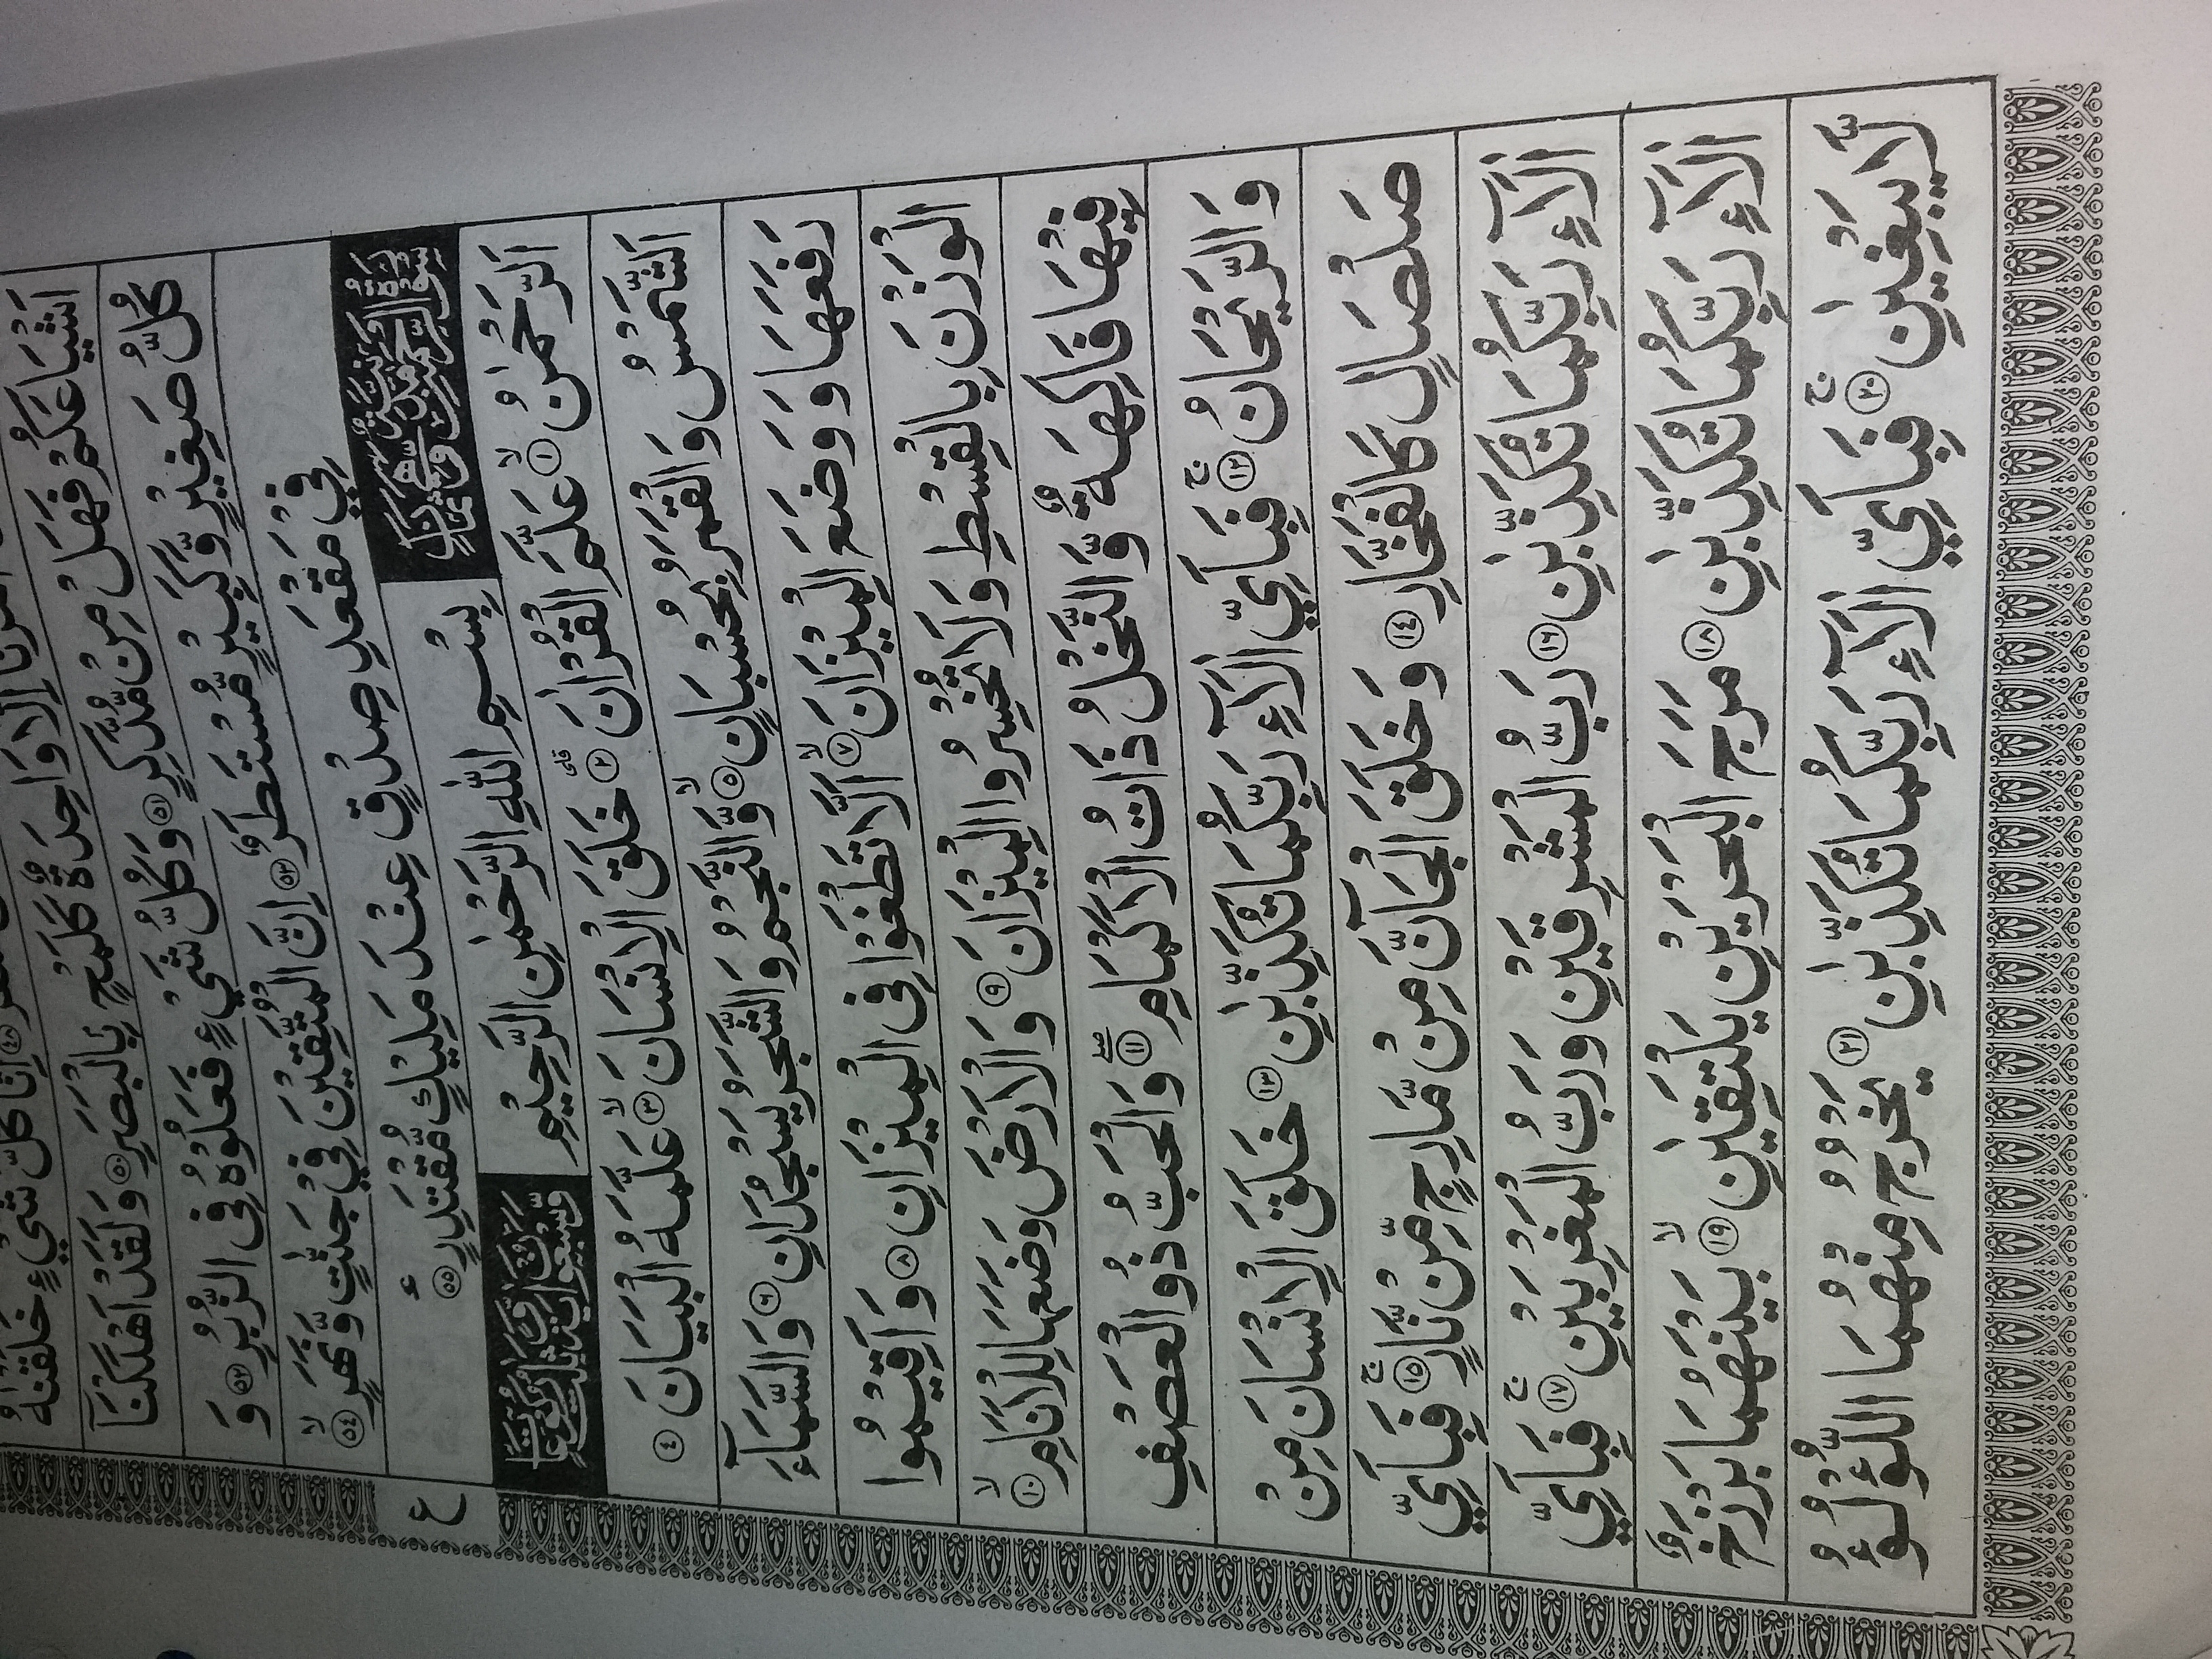 اِنَّا كُلَّ شَیْءٍ خَلَقْنٰهُ
اِلَّا وَاحِدَةٌ كَلَمْحٍۭ بِالْبَصَرِ ﴿٥٠﴾ وَلَقَدْ اَهْلَكْنَاۤ
اَشْیَاعَكُمْ فَهَلْ مِنْ مُّدَّكِرٍ ﴿٥١﴾ وَكُلُّ شَیْءٍ فَعَلُوْهُ فِی الزُّبُرِ ﴿٥٢﴾ وَ
كُلُّ صَغِیْرٍ وَّكَبِیْرٍ مُّسْتَطَرٌ ﴿٥٣﴾ اِنَّ الْمُتَّقِیْنَ فِیْ جَنّٰتٍ وَّنَهَرٍ ﴿٥٤﴾ۙ
فِیْ مَقْعَدِ صِدْقٍ عِنْدَ مَلِیْكٍ مُّقْتَدِرٍ ﴿٥٥﴾
ع
سُوْرَةُ الرَّحْمٰنِ مَدَنِیَّةٌ وَّهِیَ ثَمَانٌ
بِسْمِ اللّٰهِ الرَّحْمٰنِ الرَّحِیْمِ
وَّسَبْعُوْنَ اٰیَةً وَّثَلٰثُ رُكُوْعَاتٍ
اَلرَّحْمٰنُ ﴿١﴾ۙ عَلَّمَ الْقُرْاٰنَ ﴿٢﴾ؕ خَلَقَ الْاِنْسَانَ ﴿٣﴾ۙ عَلَّمَهُ الْبَیَانَ ﴿٤﴾
اَلشَّمْسُ وَالْقَمَرُ بِحُسْبَانٍ ﴿٥﴾ۙ وَّالنَّجْمُ وَالشَّجَرُ یَسْجُدَانِ ﴿٦﴾ وَالسَّمَآءَ
رَفَعَهَا وَوَضَعَ الْمِیْزَانَ ﴿٧﴾ۙ اَلَّا تَطْغَوْا فِی الْمِیْزَانِ ﴿٨﴾ وَاَقِیْمُوا
الْوَزْنَ بِالْقِسْطِ وَلَا تُخْسِرُوا الْمِیْزَانَ ﴿٩﴾ وَالْاَرْضَ وَضَعَهَا لِلْاَنَامِ ﴿١٠﴾ۙ
فِیْهَا فَاكِهَةٌ وَّالنَّخْلُ ذَاتُ الْاَكْمَامِ ﴿١١﴾ۖ وَالْحَبُّ ذُو الْعَصْفِ
وَالرَّیْحَانُ ﴿١٢﴾ۚ فَبِاَیِّ اٰلَآءِ رَبِّكُمَا تُكَذِّبٰنِ ﴿١٣﴾ خَلَقَ الْاِنْسَانَ مِنْ
صَلْصَالٍ كَالْفَخَّارِ ﴿١٤﴾ وَخَلَقَ الْجَآنَّ مِنْ مَّارِجٍ مِّنْ نَّارٍ ﴿١٥﴾ۚ فَبِاَیِّ
اٰلَآءِ رَبِّكُمَا تُكَذِّبٰنِ ﴿١٦﴾ رَبُّ الْمَشْرِقَیْنِ وَرَبُّ الْمَغْرِبَیْنِ ﴿١٧﴾ۚ فَبِاَیِّ
اٰلَآءِ رَبِّكُمَا تُكَذِّبٰنِ ﴿١٨﴾ مَرَجَ الْبَحْرَیْنِ یَلْتَقِیٰنِ ﴿١٩﴾ۙ بَیْنَهُمَا بَرْزَخٌ
لَّا یَبْغِیٰنِ ﴿٢٠﴾ۚ فَبِاَیِّ اٰلَآءِ رَبِّكُمَا تُكَذِّبٰنِ ﴿٢١﴾ یَخْرُجُ مِنْهُمَا اللُّؤْلُؤُ